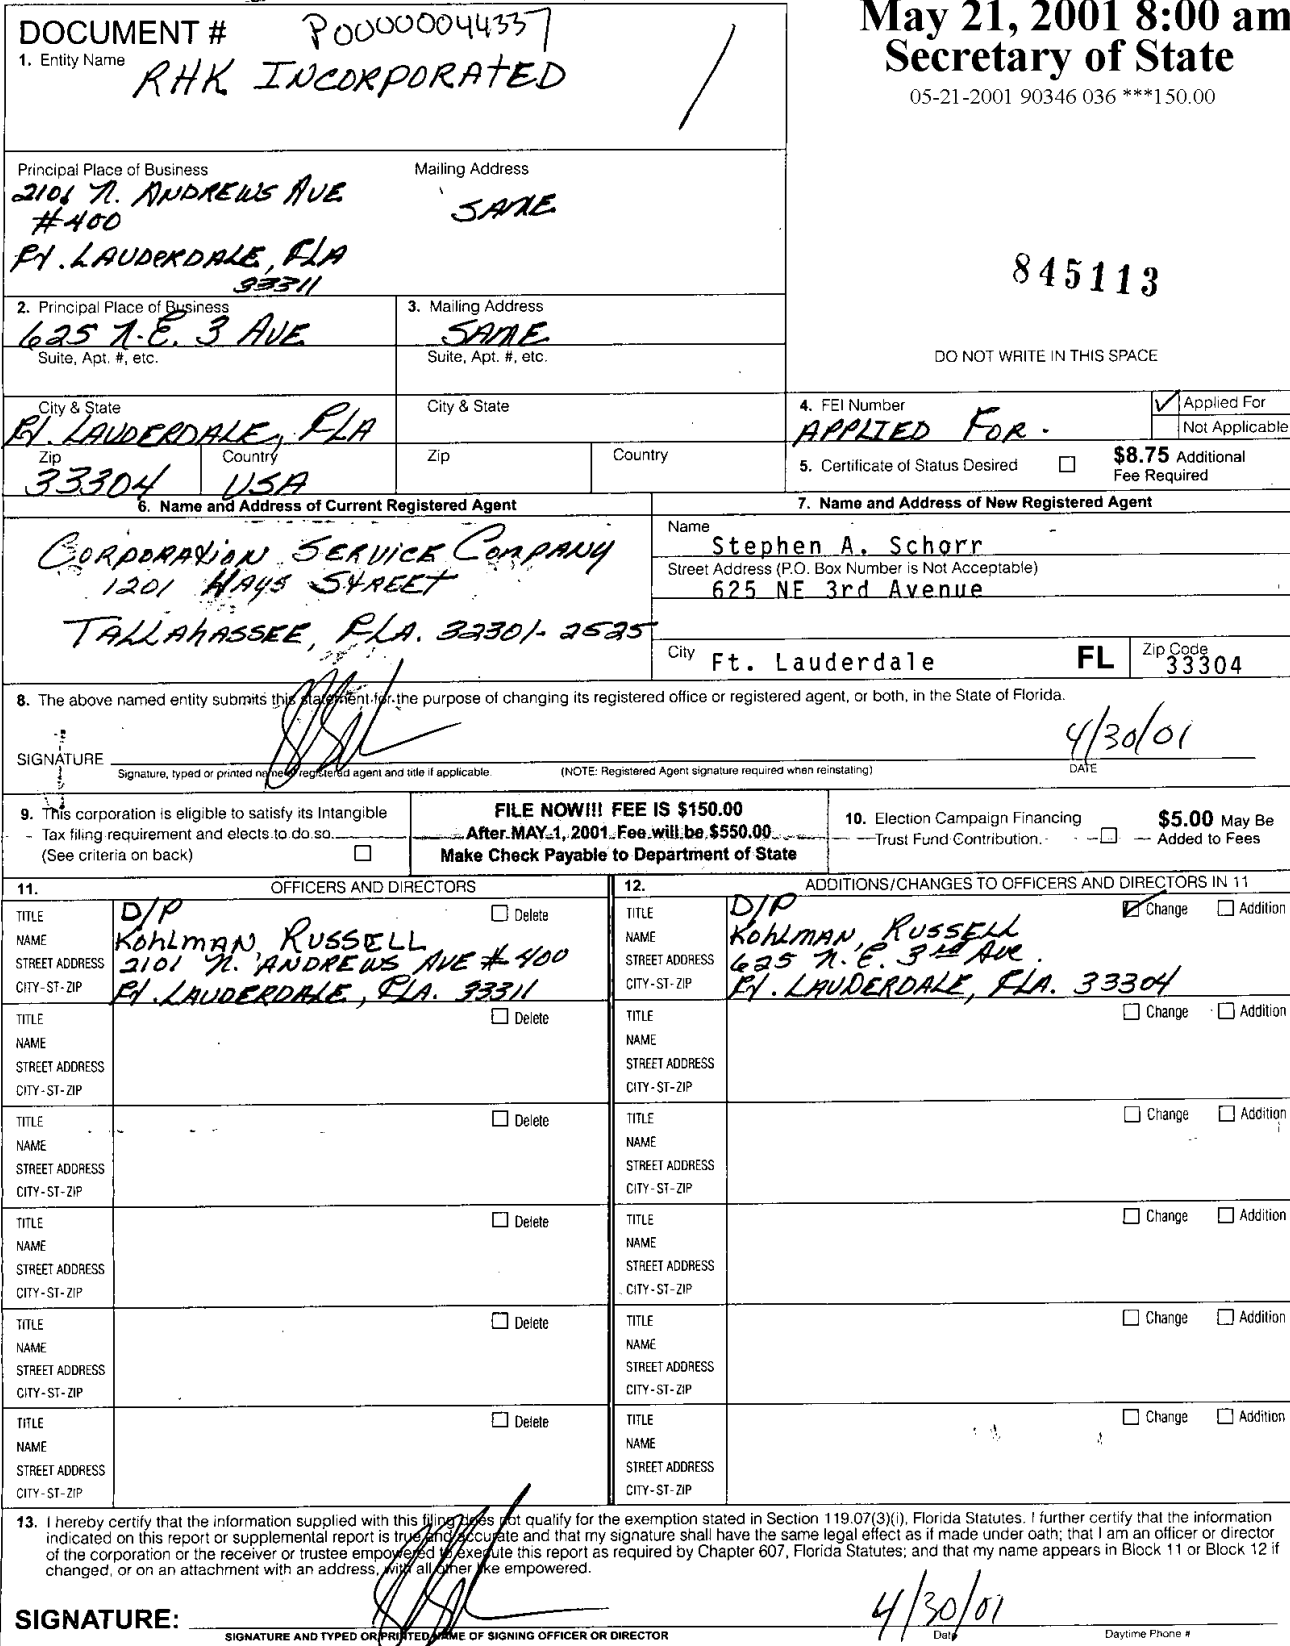 DOCUMENT # P00000044337
1. Entity Name
RHK INCORPORATED
May 21, 2001 8:00 am
Secretary of State
05-21-2001 90346 036 ***150.00
Principal Place of Business
2101 N. ANDREWS AVE
#400
Ft. LAUDERDALE, FLA
33311
Mailing Address
SAME
845113
DO NOT WRITE IN THIS SPACE
2. Principal Place of Business
625 N.E. 3 AVE
Suite, Apt. #, etc.
3. Mailing Address
SAME
Suite, Apt. #, etc.
City & State
Ft. LAUDERDALE, FLA
City & State
Zip
33304
Country
USA
Zip
Country
4. FEI Number
APPLIED FOR.
Applied For
Not Applicable
5. Certificate of Status Desired
$8.75 Additional
Fee Required
6. Name and Address of Current Registered Agent
CORPORATION SERVICE COMPANY
1201 HAYS STREET
TALLAHASSEE, FLA. 32301-2525
7. Name and Address of New Registered Agent
Name
Stephen A. Schorr
Street Address (P.O. Box Number is Not Acceptable)
625 NE 3rd Avenue
City Ft. Lauderdale FL
Zip Code
33304
8. The above named entity submits this statement for the purpose of changing its registered office or registered agent, or both, in the State of Florida.
SIGNATURE
4/30/01
Signature, typed or printed name of registered agent and title if applicable. (NOTE: Registered Agent signature required when reinstating) DATE
9. This corporation is eligible to satisfy its Intangible
Tax filing requirement and elects to do so.
(See criteria on back)
FILE NOW!!! FEE IS $150.00
After MAY 1, 2001 Fee will be $550.00
Make Check Payable to Department of State
10. Election Campaign Financing
Trust Fund Contribution.
$5.00 May Be
Added to Fees
11. OFFICERS AND DIRECTORS
TITLE D/P Delete
NAME KOHLMAN, RUSSELL
STREET ADDRESS 2101 N. ANDREWS AVE #400
CITY-ST-ZIP Ft. LAUDERDALE, FLA. 33311
TITLE Delete
NAME
STREET ADDRESS
CITY-ST-ZIP
TITLE Delete
NAME
STREET ADDRESS
CITY-ST-ZIP
TITLE Delete
NAME
STREET ADDRESS
CITY-ST-ZIP
TITLE Delete
NAME
STREET ADDRESS
CITY-ST-ZIP
TITLE Delete
NAME
STREET ADDRESS
CITY-ST-ZIP
12. ADDITIONS/CHANGES TO OFFICERS AND DIRECTORS IN 11
TITLE D/P Change Addition
NAME KOHLMAN, RUSSELL
STREET ADDRESS 625 N.E. 3rd Ave.
CITY-ST-ZIP Ft. LAUDERDALE, FLA. 33304
TITLE Change Addition
NAME
STREET ADDRESS
CITY-ST-ZIP
TITLE Change Addition
NAME
STREET ADDRESS
CITY-ST-ZIP
TITLE Change Addition
NAME
STREET ADDRESS
CITY-ST-ZIP
TITLE Change Addition
NAME
STREET ADDRESS
CITY-ST-ZIP
TITLE Change Addition
NAME
STREET ADDRESS
CITY-ST-ZIP
13. I hereby certify that the information supplied with this filing does not qualify for the exemption stated in Section 119.07(3)(i), Florida Statutes. I further certify that the information
indicated on this report or supplemental report is true and accurate and that my signature shall have the same legal effect as if made under oath; that I am an officer or director
of the corporation or the receiver or trustee empowered to execute this report as required by Chapter 607, Florida Statutes; and that my name appears in Block 11 or Block 12 if
changed, or on an attachment with an address, with all other like empowered.
SIGNATURE:
4/30/01
SIGNATURE AND TYPED OR PRINTED NAME OF SIGNING OFFICER OR DIRECTOR Date Daytime Phone #